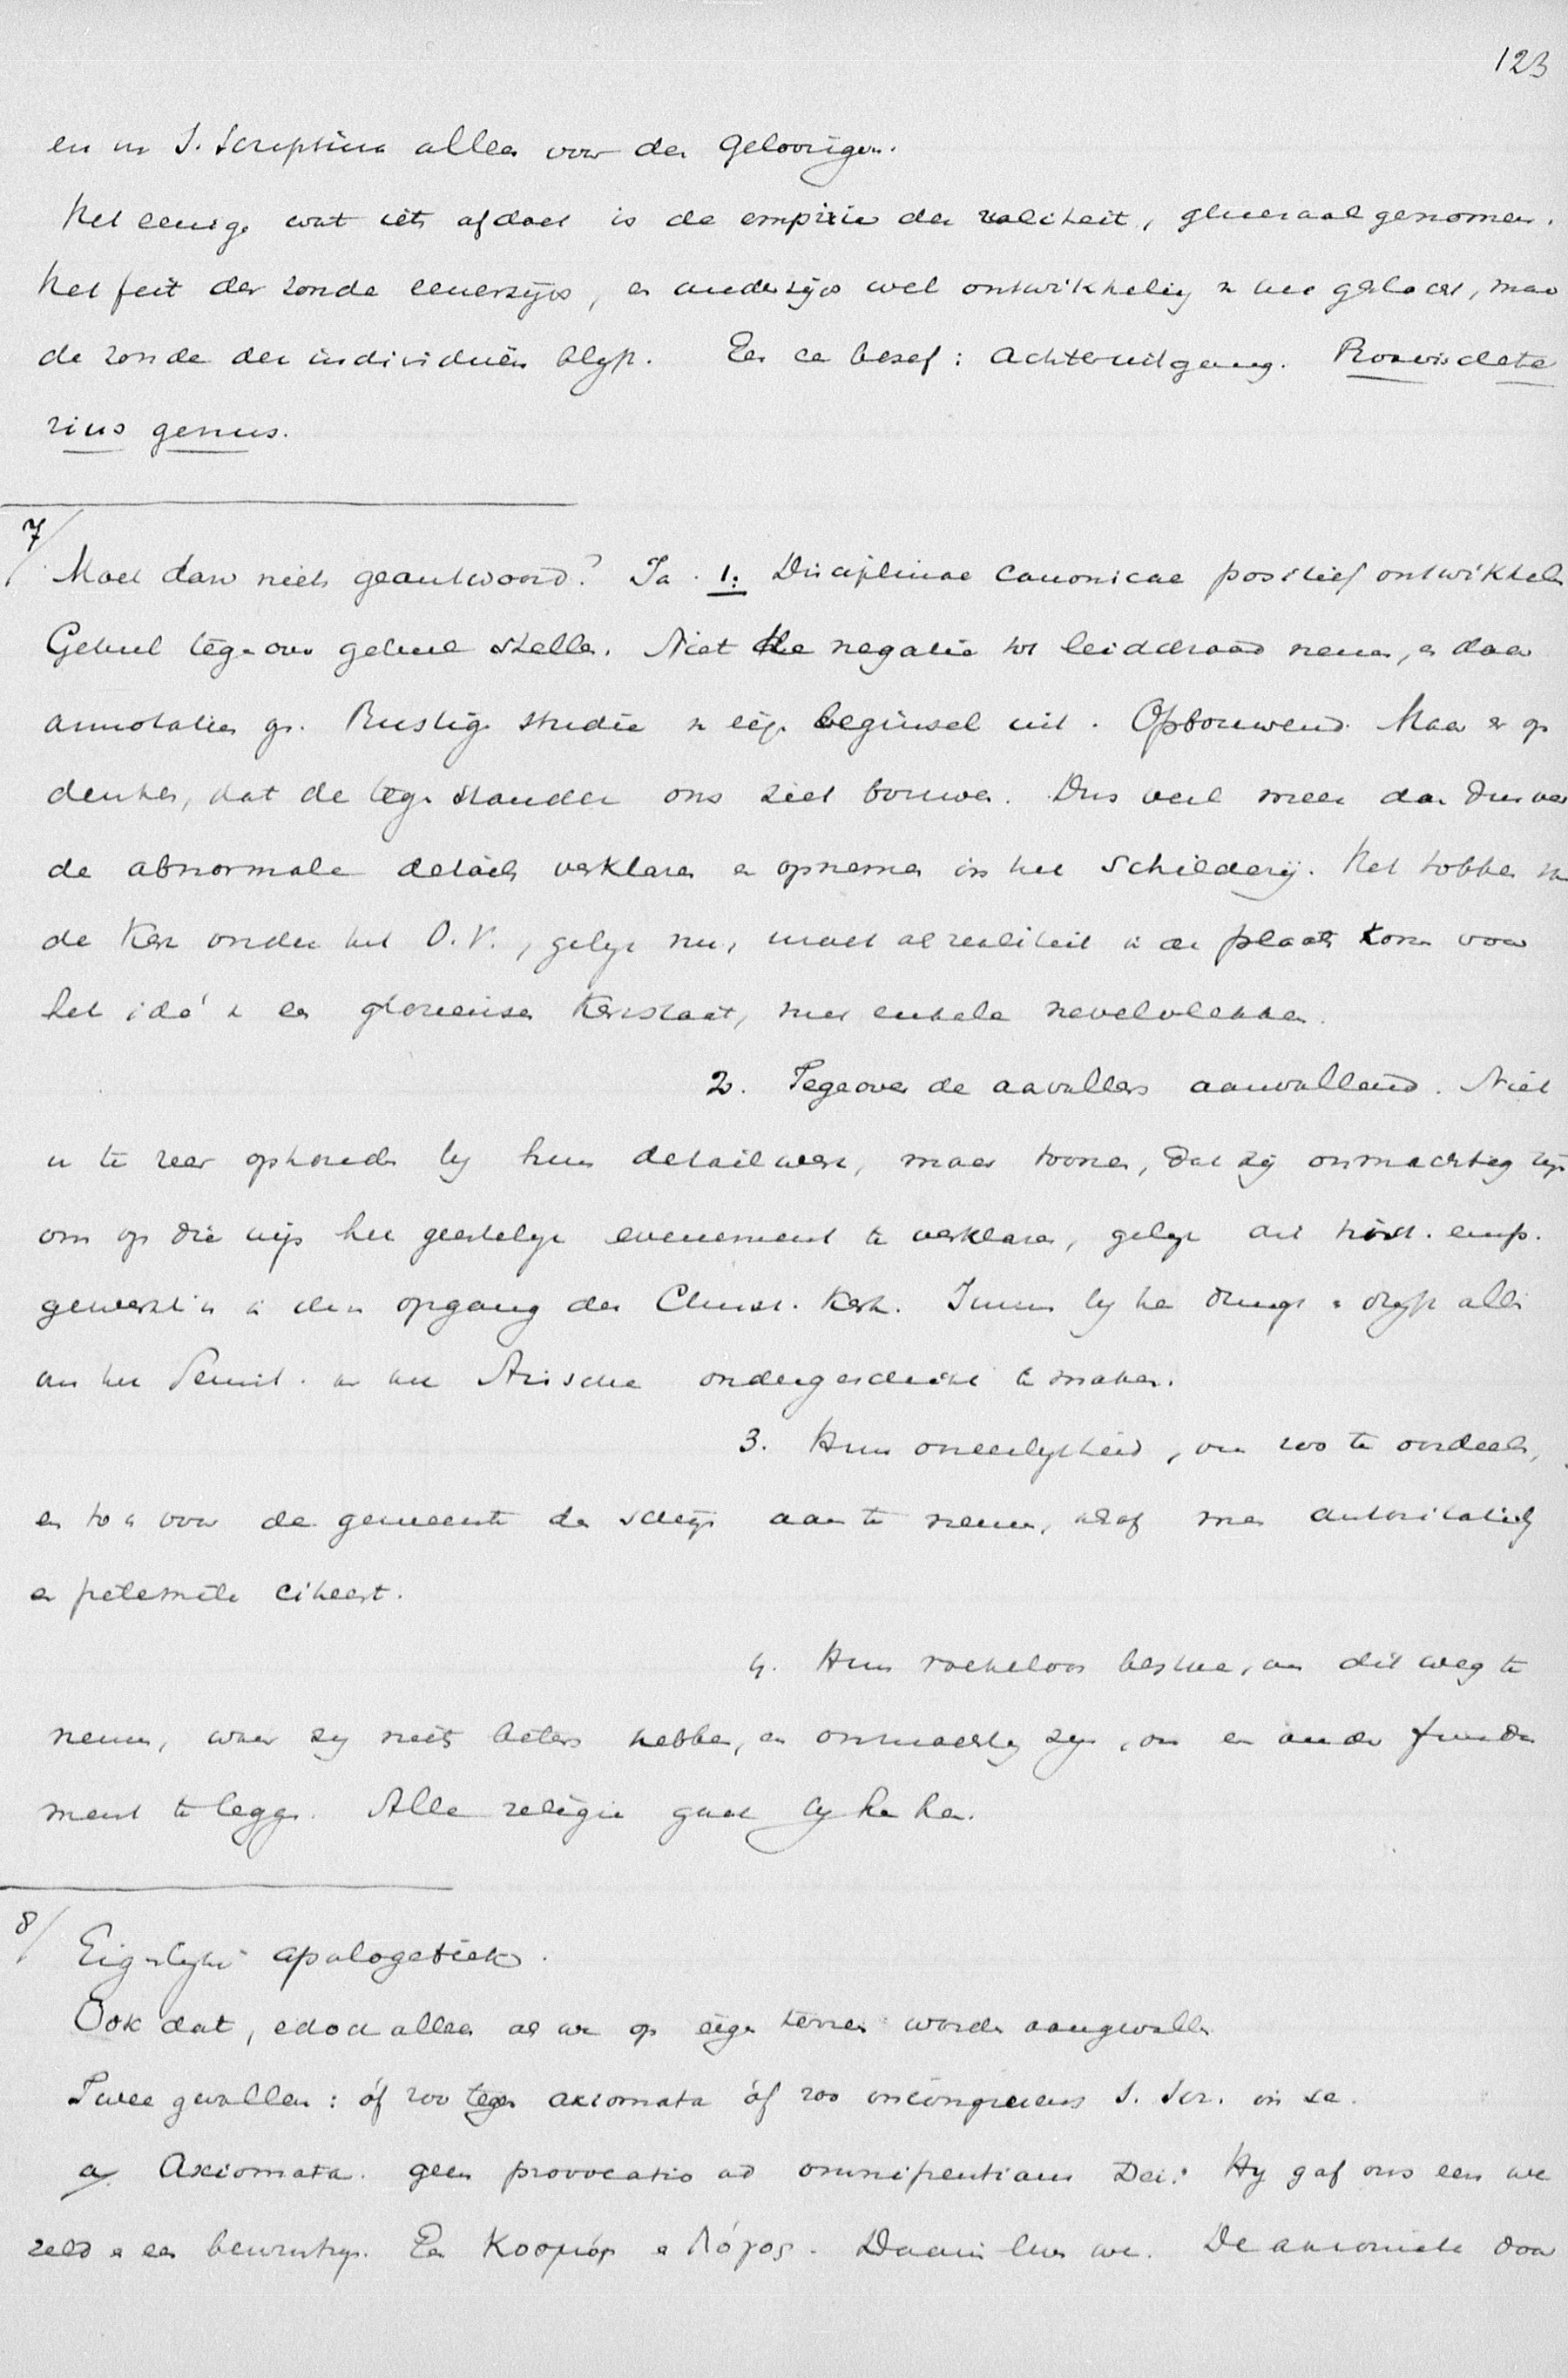 123
en in S. Scriptura alleen voor den Geloovigen.
Het eenige wat iets afdoet is de empirie der realiteit, generaal genomen.
Het feit der zonde eenerzijds, en anderzijds wel ontwikkeling in het geslacht, maar
de zonde der individuën blijft. En ca besef: achteruitgang. Proavis dete
rius genus.
7/ Moet dan niets geantwoord? Ja. 1. Disciplinae canonicae positief ontwikkelen
Geheel tegenover geheel stellen. Niet de negatie tot leiddraad nemen, en daar
annotaties op. Rustige studie eigen beginsel uit. Opbouwend. Maar er op
denken, dat de tegenstander ons ziet bouwen. Dus veel meer dan dusver
de abnormale details verklaren en opnemen in het schilderij. Het tobben van
de Kerk onder het O.V., gelijk nu, moet als realiteit in de plaats komen voor
het idé een glorieusen Kerkstaat, met enkele nevelvlekken.
2. Tegenover de aanvallers aanvallend. Niet
u te zeer ophouden bij hun detailwerk, maar toonen, dat zij onmachtig zijn
om op die wijs het geestelijk evenement te verklaren, gelijk dit hist. emp.
gewerkt is in den opgang der Christ. Kerk. Immers bij hen dringt en drijft alles
om het Semit. aan het Arische ondergeschikt te maken.
3. Hun oneerlijkheid, om zoo te oordeelen,
en toch voor de gemeente den schijn aan te nemen, alsof men autoritatief
en petemete citeert.
4. Hun roekeloos bestaan, om dit weg te
nemen, waar zij niets beters hebben, en onmachtig zijn, om een ander funda
ment te leggen. Alle religie gaat bij hen heen.
8/ Eigenlijke apologetiek.
Ook dat, edoch alleen als we op eigen terrein worden aangevallen
Twee gevallen: óf zoo tegen axiomata óf zoo incongrueens S. Scr. in se.
a/. Axiomata. geen provocatio ad omnipotentiam Dei: Hij gaf ons een we
reld en een bewustzijn. Een Κοσμος en Λόγος. Daarin leven we. De axiomata door